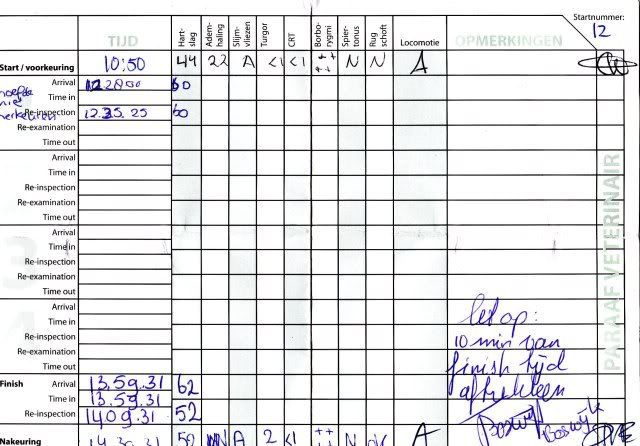 Startnummer:
12
TIJD Hart-slag Adem-haling Slijm-vliezen Turgor CRT Borbo-rygmi Spier-tonus Rug schoft Locomotie OPMERKINGEN
Start / voorkeuring 10:50 44 22 A <1 <1 ++ ++ N N A
Arrival 60
Time in
Re-inspection 12.35.25 60
Re-examination
Time out
Arrival
Time in
Re-inspection
Re-examination
Time out
Arrival
Time in
Re-inspection
Re-examination
Time out
Arrival
Time in
Re-inspection
Re-examination
Time out
let op:
10 min van
finish tijd
aftrekken
Finish Arrival 13.59.31 62
Time in 13.59.31
Re-inspection 1409.31 52
Boswijk
Boswijk
Nakeuring A 2 <1 ++ N A
PARAAF VETERINAIR